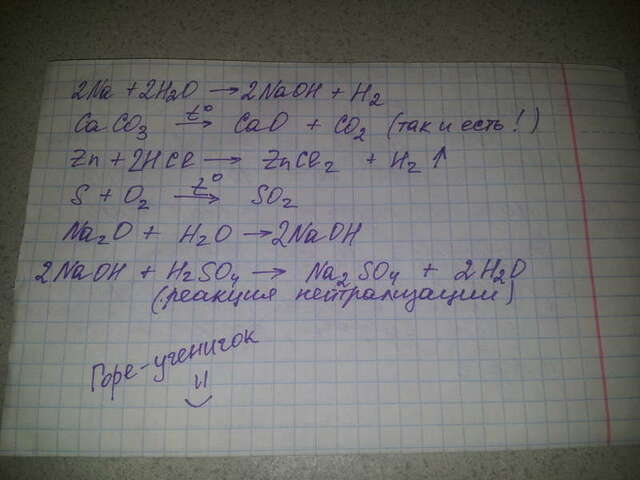 2Na + 2H₂O → 2NaOH + H₂
CaCO₃ →t° CaO + CO₂ (так и есть!)
Zn + 2HCl → ZnCl₂ + H₂ ↑
S + O₂ →t° SO₂
Na₂O + H₂O → 2NaOH
2NaOH + H₂SO₄ → Na₂SO₄ + 2H₂O
(реакция нейтрализации)
Горе-ученичок